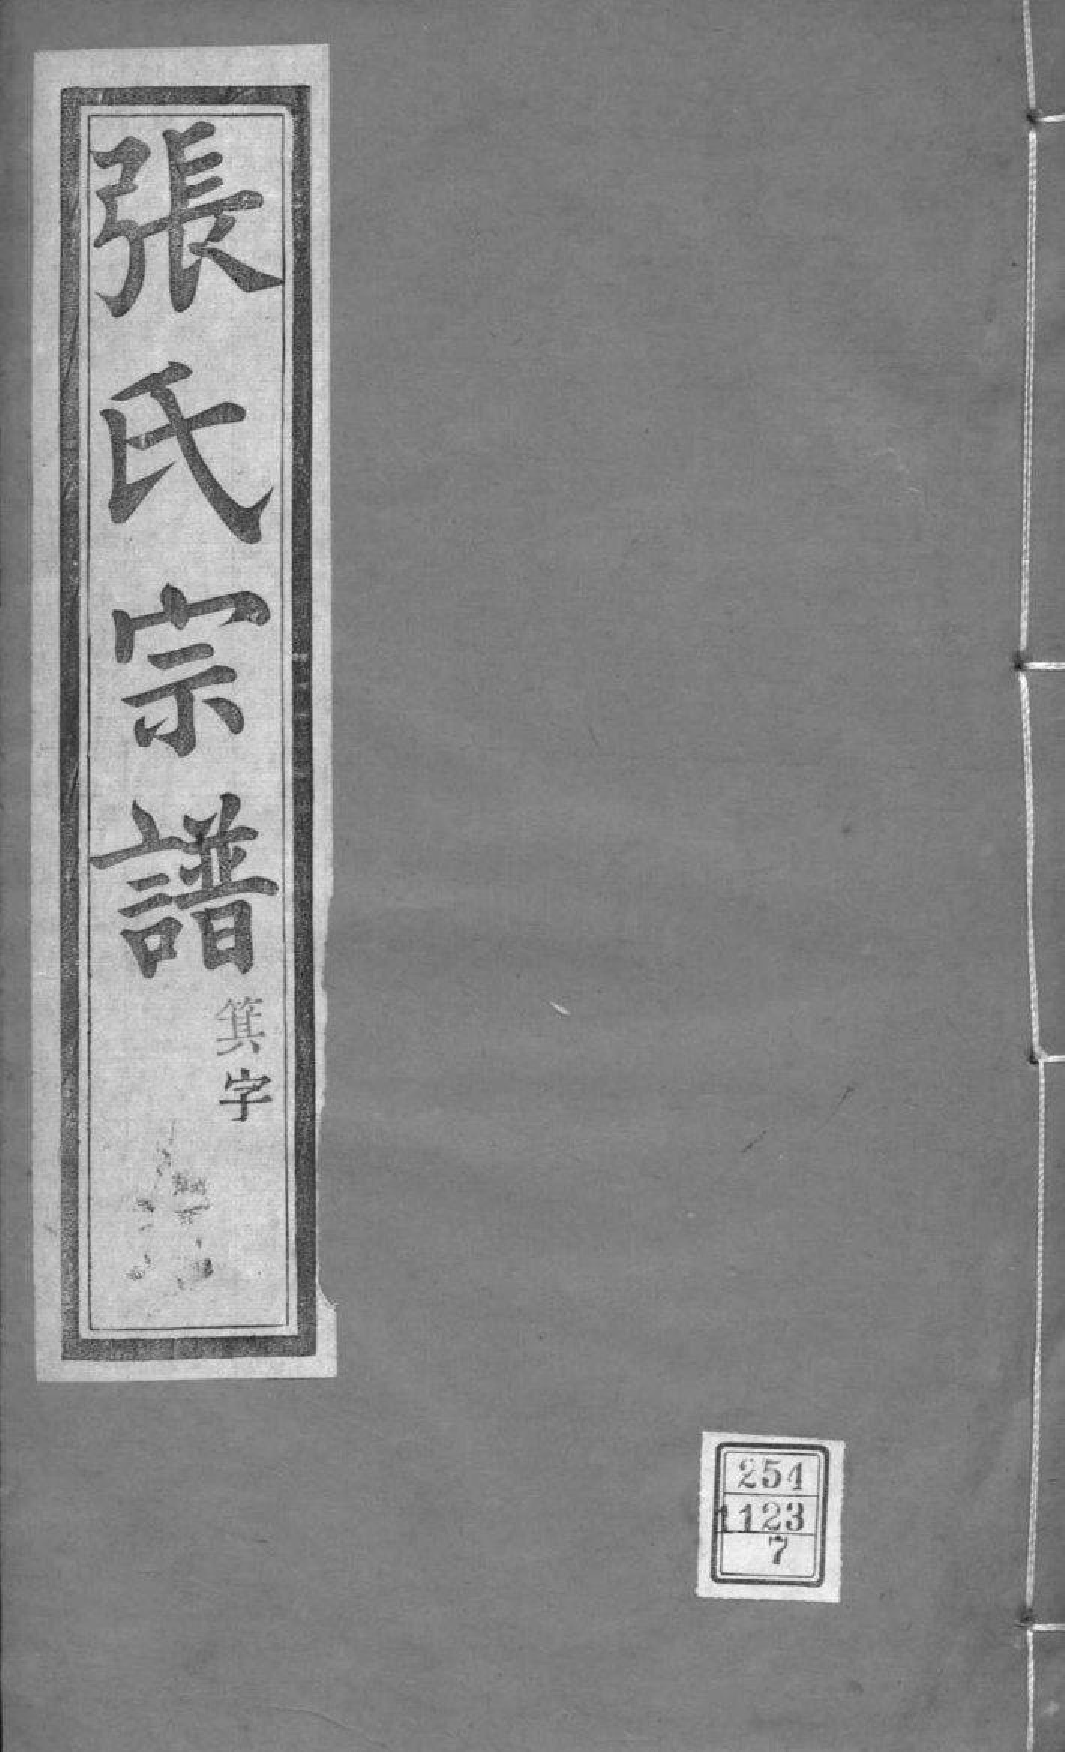 張氏宗譜
箕字
254
1123
7